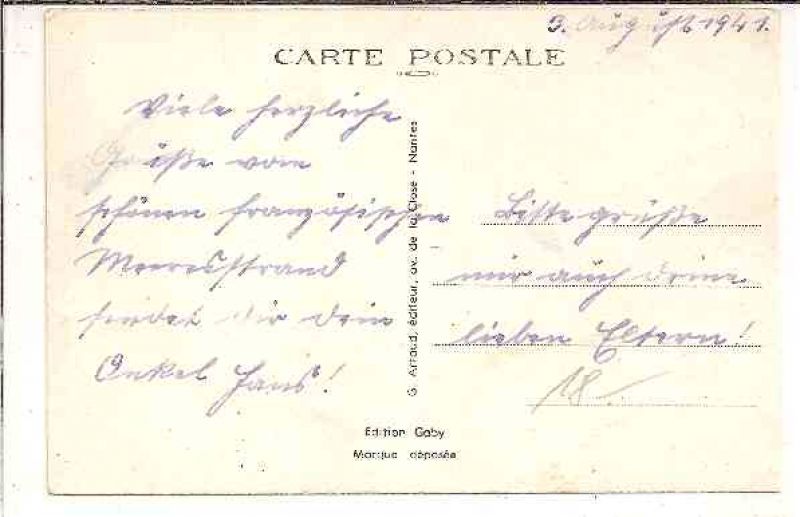 3. August 1941.
CARTE POSTALE
Viele herzliche
Grüße vom
schönen französischen
Meeresstrand
sendet dir dein
Onkel Hans!
G. Artaud, éditeur, av. de la Close - Nantes
Bitte grüße
mir auch deine
lieben Eltern!
18
Edition Gaby
Marque déposée